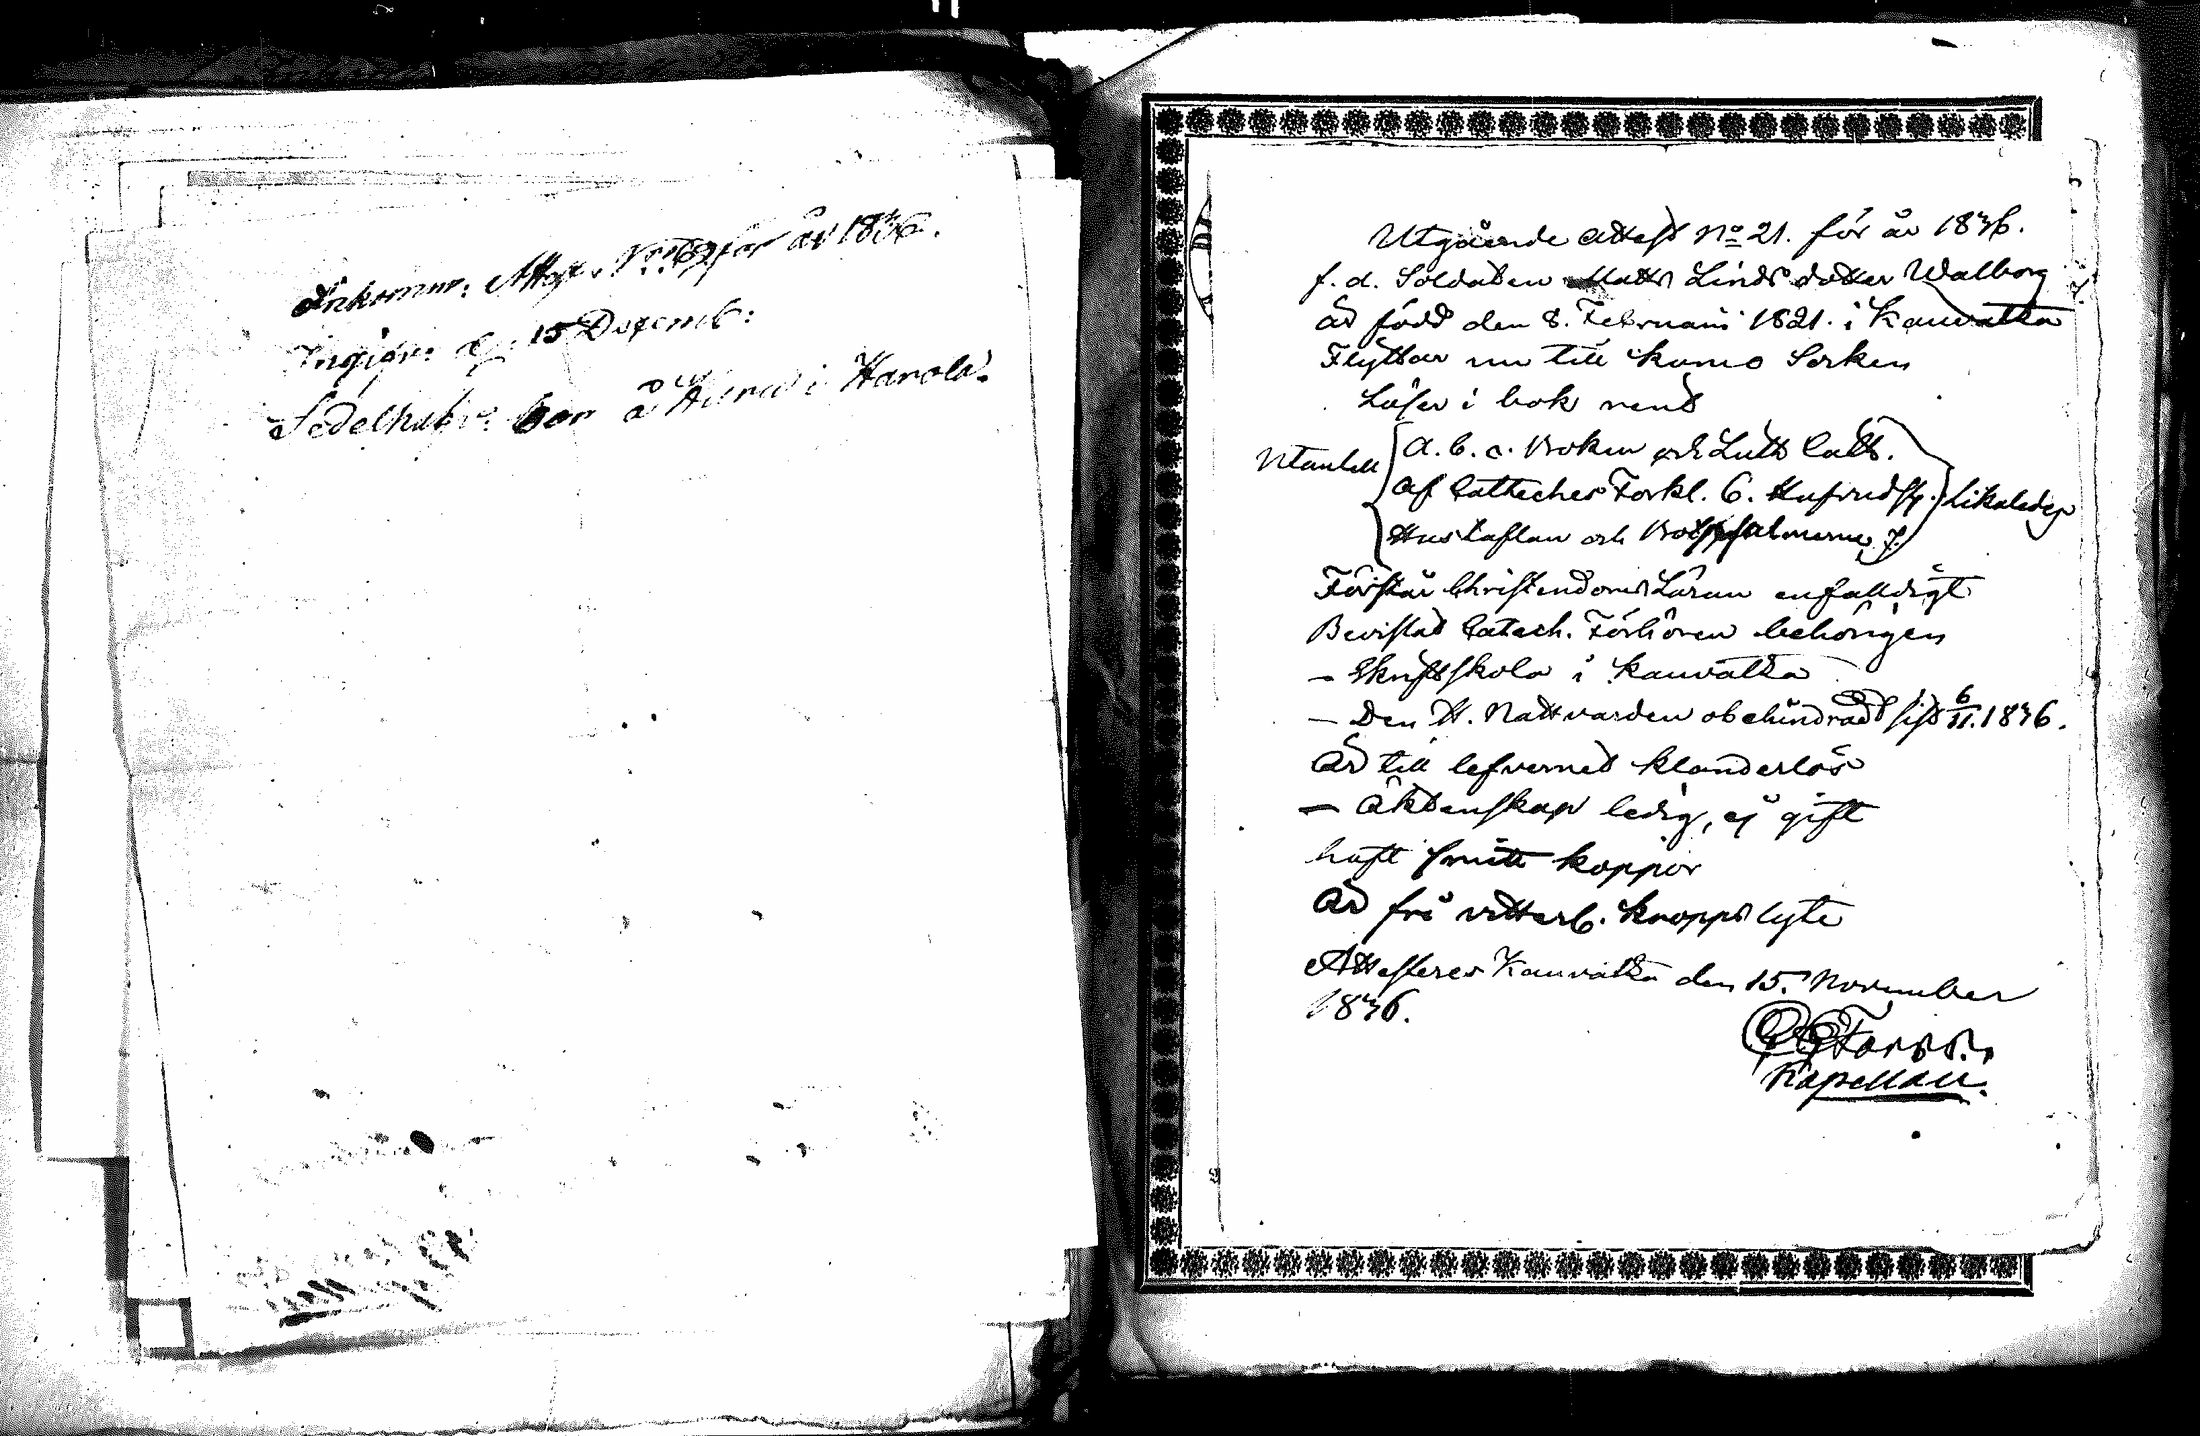 Inkommn: Attest No 69 för år 1836.
Ingifn: d. 15 Decemb:
Sedelhafv: bor å i Harola.
Utgående attest No 21. för år 1836.
f. d. Soldaten Matts Linds dotter Walborg
är född den 8. Februarii 1821. i Kauvatsa
Flyttar nu till Kumo Socken
Läser i bok rent
Utantill
A. b. c. Boken och Luth. Cath.
Af Catheches Förkl. 6. Hufvudst.
Hustaflan och Botpsalmerne 7.
Likaledes
Förstår Christendoms Läran enfaldigt
Bevistat Catech. Förhören behörigen
— Skriftskola i Kauvatsa
— Den H. Nattvarden obehindradt sist 6/11. 1836.
är till lefvernet klanderlös
— Äktenskap ledig, ej gift
haft smitt koppor
är fri vitterl. kropps lyte
Attesteras Kauvatsa den 15. November
1836.
Forss.
Kapellan.